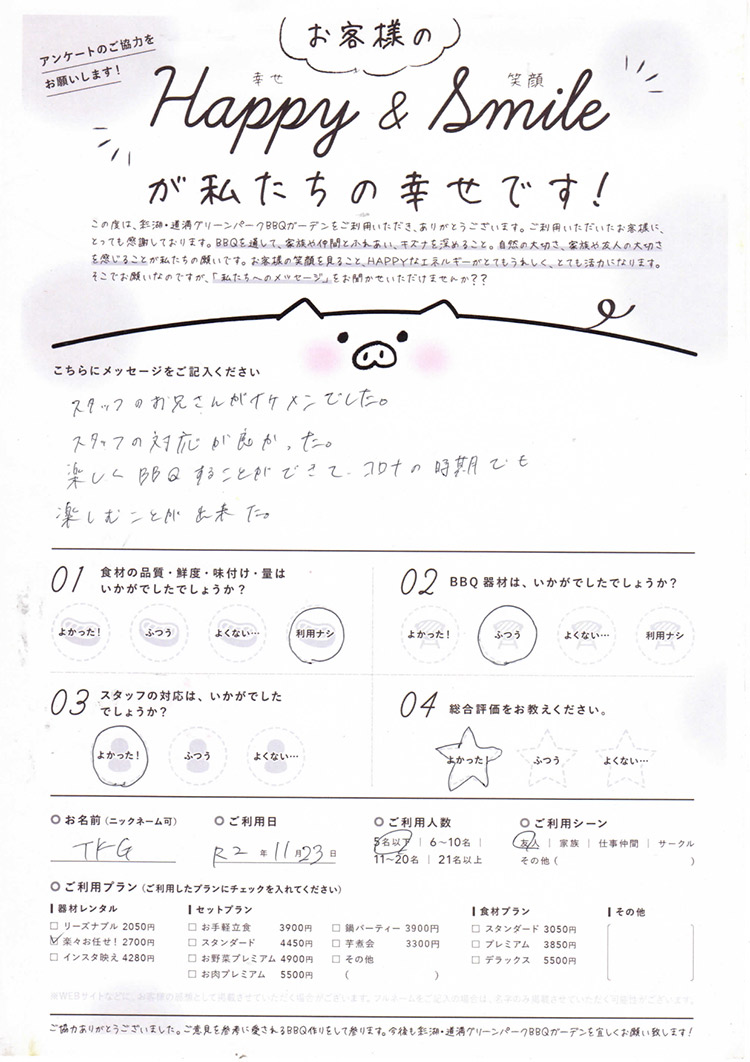 アンケートのご協力を
お願いします!
お客様の
幸せ 笑顔
Happy & Smile
が私たちの幸せです!
この度は、彩湖・道満グリーンパークBBQガーデンをご利用いただき、ありがとうございます。ご利用いただいたお客様に、
とっても感謝しております。BBQを通して、家族や仲間とふれあい、キズナを深めること。自然の大切さ、家族や友人の大切さ
を感じることが私たちの願いです。お客様の笑顔を見ること、HAPPYなエネルギーがとてもうれしく、とても活力になります。
そこでお願いなのですが、「私たちへのメッセージ」をお聞かせいただけませんか??
こちらにメッセージをご記入ください
スタッフのお兄さんがイケメンでした。
スタッフの対応が良かった。
楽しくBBQすることができて、コロナの時期でも
楽しむことが出来た。
01 食材の品質・鮮度・味付け・量は
いかがでしたでしょうか?
よかった! ふつう よくない… 利用ナシ
02 BBQ器材は、いかがでしたでしょうか?
よかった! ふつう よくない… 利用ナシ
03 スタッフの対応は、いかがでした
でしょうか?
よかった! ふつう よくない…
04 総合評価をお教えください。
よかった! ふつう よくない…
お名前(ニックネーム可)
TKG
ご利用日
R2年11月23日
ご利用人数
5名以下 | 6~10名 |
11~20名 | 21名以上
ご利用シーン
友人 | 家族 | 仕事仲間 | サークル
その他( )
ご利用プラン(ご利用したプランにチェックを入れてください)
器材レンタル
リーズナブル 2050円
楽々お任せ! 2700円
インスタ映え 4280円
セットプラン
お手軽立食 3900円
スタンダード 4450円
お野菜プレミアム 4900円
お肉プレミアム 5500円
鍋パーティー 3900円
芋煮会 3300円
その他
( )
食材プラン
スタンダード 3050円
プレミアム 3850円
デラックス 5500円
その他
※WEBサイトなどに、お客様の感想として掲載させていただく場合がございます。フルネームをご記入の場合は、名字のみ掲載させていただく可能性がございます。
ご協力ありがとうございました。ご意見を参考に愛されるBBQ作りをして参ります。今後も彩湖・道満グリーンパークBBQガーデンを宜しくお願い致します!